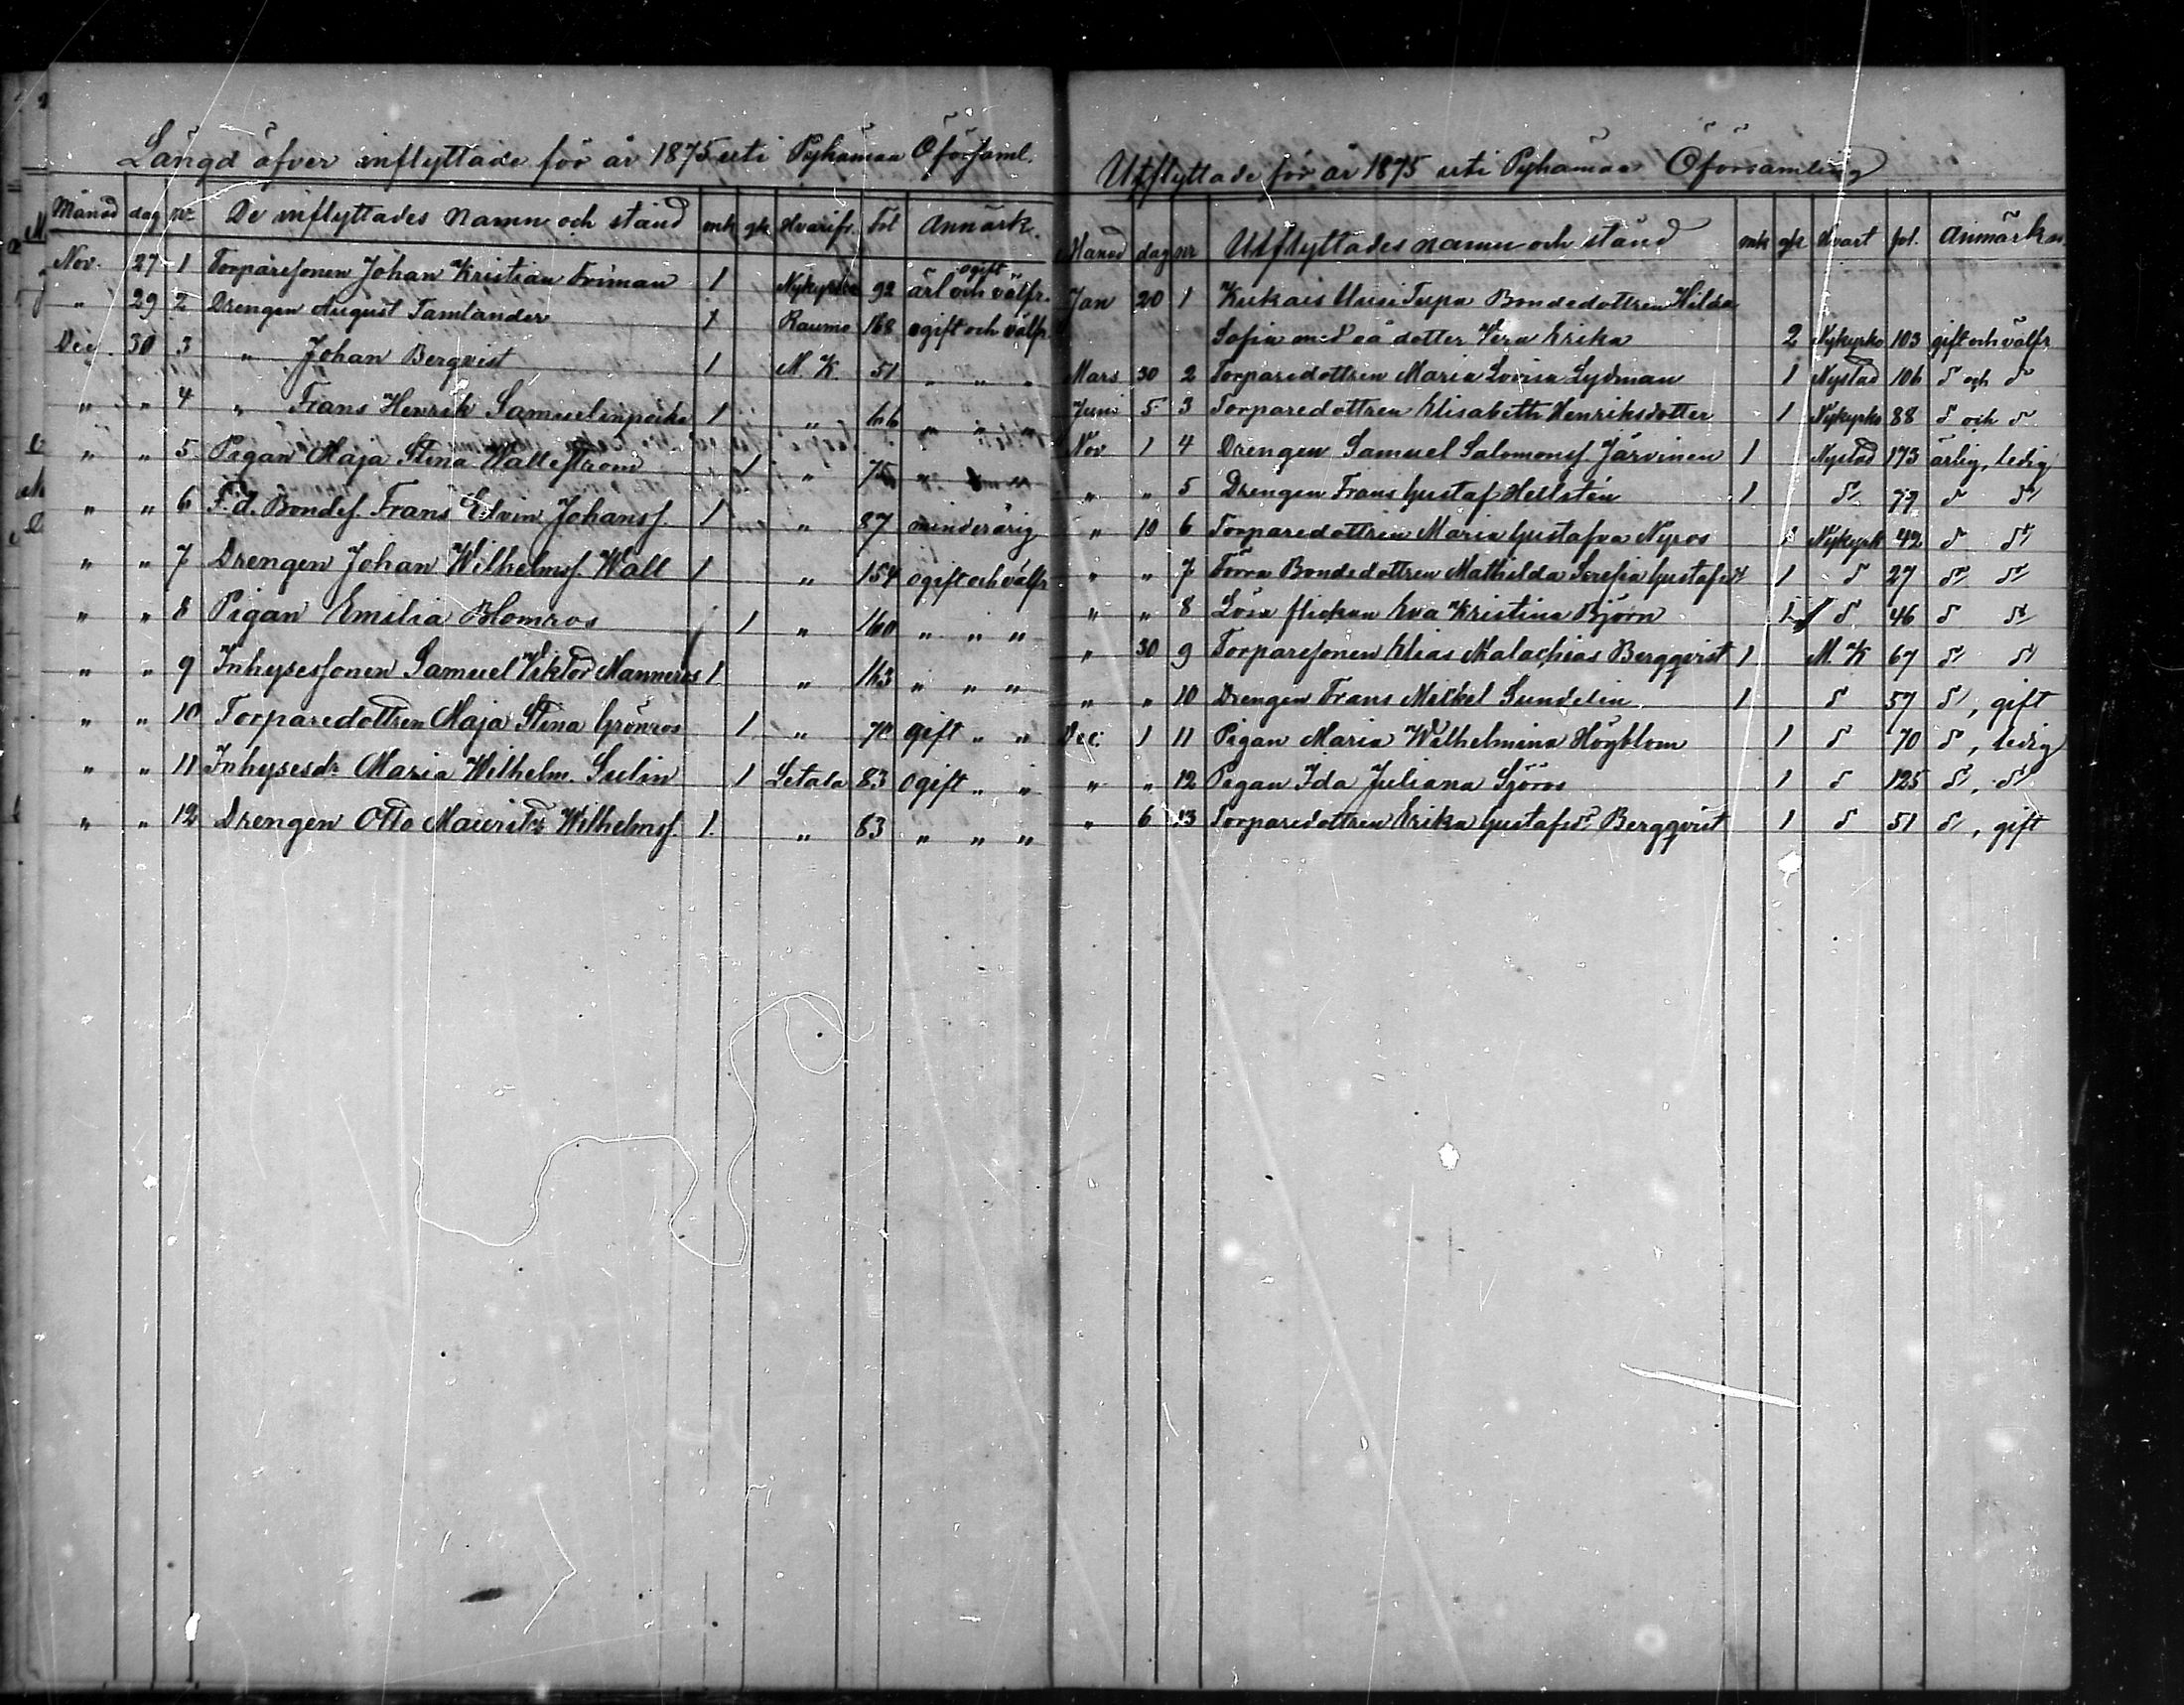 Längd öfver inflyttade för år 1875 uti Pyhämaa Öförsaml.
Månad dag nr De inflyttades namn och stånd mk gk Hvarifr. Fol Anmärk.
Nov. 27 1 Torparesonen Johan Kristian Friman 1 Nykyrko 92 ärl och välfr. ogift
" 29 2 Drengen August Tamlander 1 Raumo 168 ogift och välfr.
Dec. 30 3 " Johan Berqvist 1 M. K. 51 " " "
" " 4 " Frans Henrik Samuelinpoika 1 " 66 " " "
" " 5 Pigan Maja Stina Wallestrom 1 " 75 "
" " 6 F.d. Bondes. Frans Edvin Johanss. 1 " 87 minderårig
" " 7 Drengen Johan Wilhelmss. Wall 1 " 154 ogift och välfr
" " 8 Pigan Emilia Blomros 1 " 160 " " "
" " 9 Inhysessonen Samuel Viktor Manneros 1. " 163 " " "
" " 10 Torparedottren Maja Stina Grönros 1. " 70 gift " "
" " 11 Inhysesdr Maria Wilhelm. Sulin 1 Letala 83 Ogift " "
" " 12 Drengen Otto Mauritz Wilhelmss. 1. " 83 " " "
Utflyttade för år 1875 uti Pyhämaa Öförsamling
Månad dag nr Utflyttades namn och stånd mk gk Hvart fol. Anmärkn
Jan 20 1 Kukais Uusi Tupa Bondedottren Hilda
Sofia med oä dotter Vera Erika 2 Nykyrko 103 gift och välfr
Mars 30 2 Torparedottren Maria Lovisa Lydman 1 Nystad 106 d och d
Juni 5 3 Torparedottren Elisabeth Henriksdotter 1 Nykyrko 88 d och d
Nov 1 4 Drengen Samuel Salomonss. Järvinen 1 Nystad 173 ärlig, ledig
" " 5 Drengen Frans Gustaf Hellsten 1 do 79 d do
" 10 6 Torparedottren Maria Gustafva Nyros 1 Nykyrk 42 d do
" " 7 Förra Bondedottren Mathilda Serefia Gustafsdr 1 d 27 do do
" " 8 Lösa flickan Eva Kristina Björn 1 d 46 d do
" 30 9 Torparesonen Elias Malachias Bergqvist 1 M. K 67 do do
" " 10 Drengen Frans Mickel Sundelin 1 d 57 do, gift
Dec. 1 11 Pigan Maria Wilhelmina Högblom 1 d 70 d, ledig
" " 12 Pigan Ida Juliana Sjöros 1 d 125 do, do
" 6 13 Torparedottren Erika Gustafsdr Bergqvist 1 d 51 d, gift